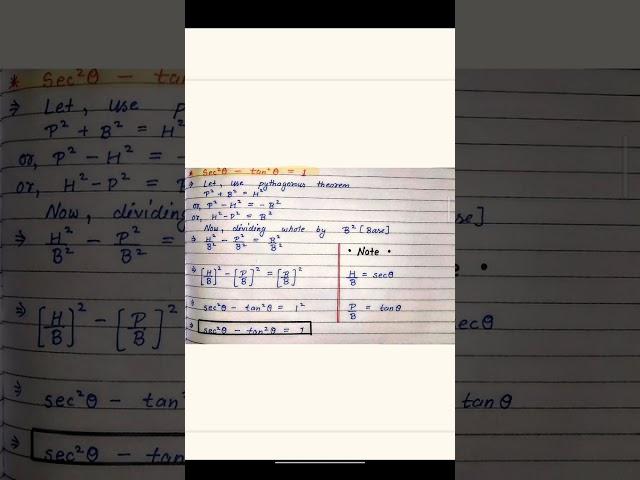 * Sec²θ - tan²θ = 1
⇒ Let, use pythagorous theorem
P² + B² = H²
or, P² - H² = - B²
or, H² - P² = B²
Now, dividing whole by B² [Base]
⇒ H²/B² - P²/B² = B²/B²
• Note •
⇒ [H/B]² - [P/B]² = [B/B]²
H/B = secθ
⇒ sec²θ - tan²θ = 1²
P/B = tanθ
⇒ sec²θ - tan²θ = 1